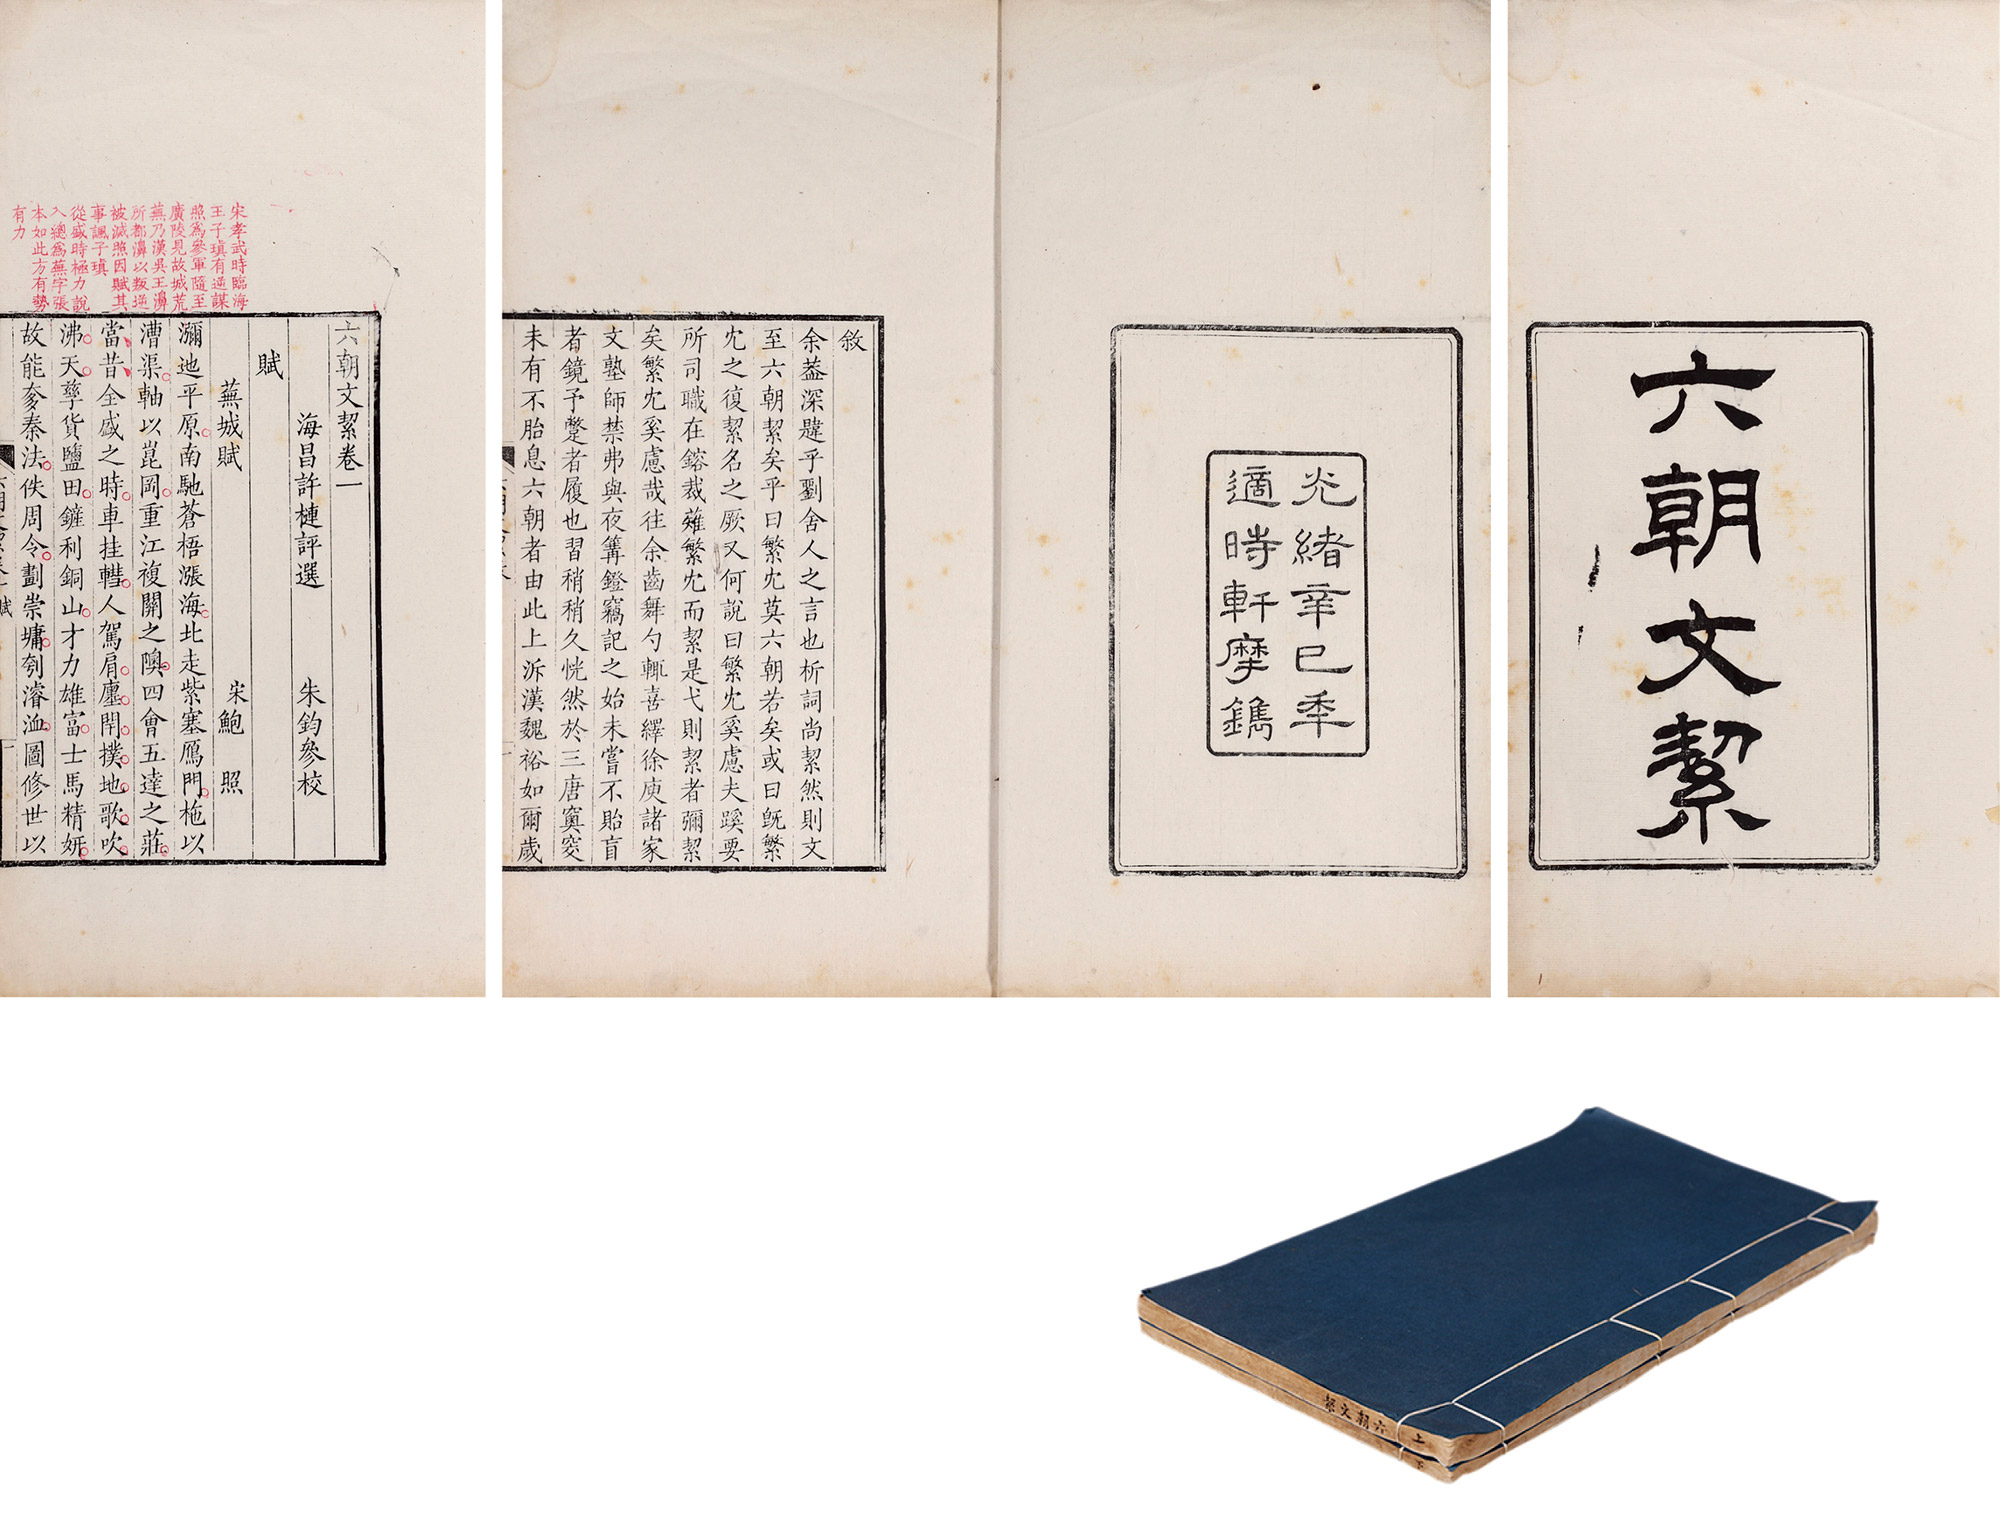 六朝文絜
光緒辛巳季
適時軒摩鐫
敘
余葢深韙乎劉舍人之言也析詞尚絜然則文
至六朝絜矣乎曰繁宂莫六朝若矣或曰旣繁
宂之復絜名之厥又何說曰繁宂奚慮夫蹊要
所司職在鎔裁薙繁宂而絜是弋則絜者彌絜
矣繁宂奚慮哉往余齒舞勺輒喜繹徐庾諸家
文塾師禁弗與夜篝鐙竊記之始未嘗不貽盲
者鏡予躄者履也習稍稍久恍然於三唐奧窔
未有不胎息六朝者由此上泝漢魏裕如爾歲
宋孝武時臨海
王子瑱有逆謀
照為參軍隨至
廣陵見故城荒
蕪乃漢吳王濞
所都濞以叛逆
被滅照因賦其
事諷子瑱
從盛時極力說
入總為蕪字張
本如此方有勢
有力
六朝文絜卷一
海昌許槤評選 朱鈞參校
賦
蕪城賦 宋鮑 照
瀰迆平原南馳蒼梧漲海北走紫塞鴈門柂以
漕渠軸以崑岡重江複關之隩四會五達之莊
當昔全盛之時車挂轊人駕肩廛閈撲地歌吹
沸天孳貨鹽田鏟利銅山才力雄富士馬精妍
故能奓秦法佚周令劃崇墉刳濬洫圖修世以
六朝文絜
上
下